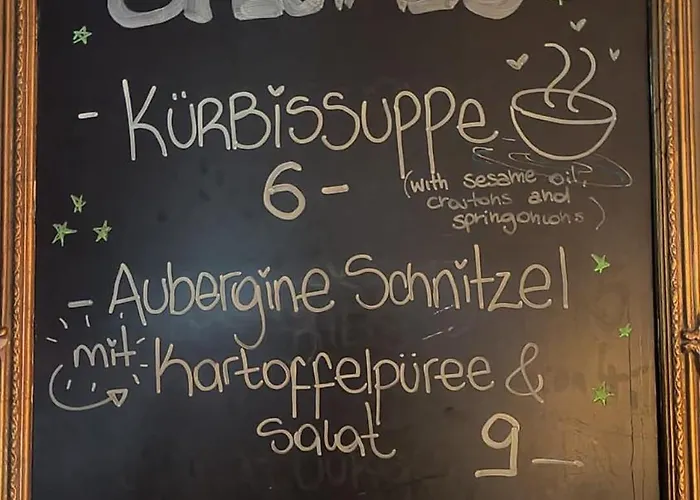 - KÜRBiSSUPPE
6 -
(with sesame oil,
croutons and
springonions)
- Aubergine Schnitzel
mit Kartoffelpüree &
Salat 9 -